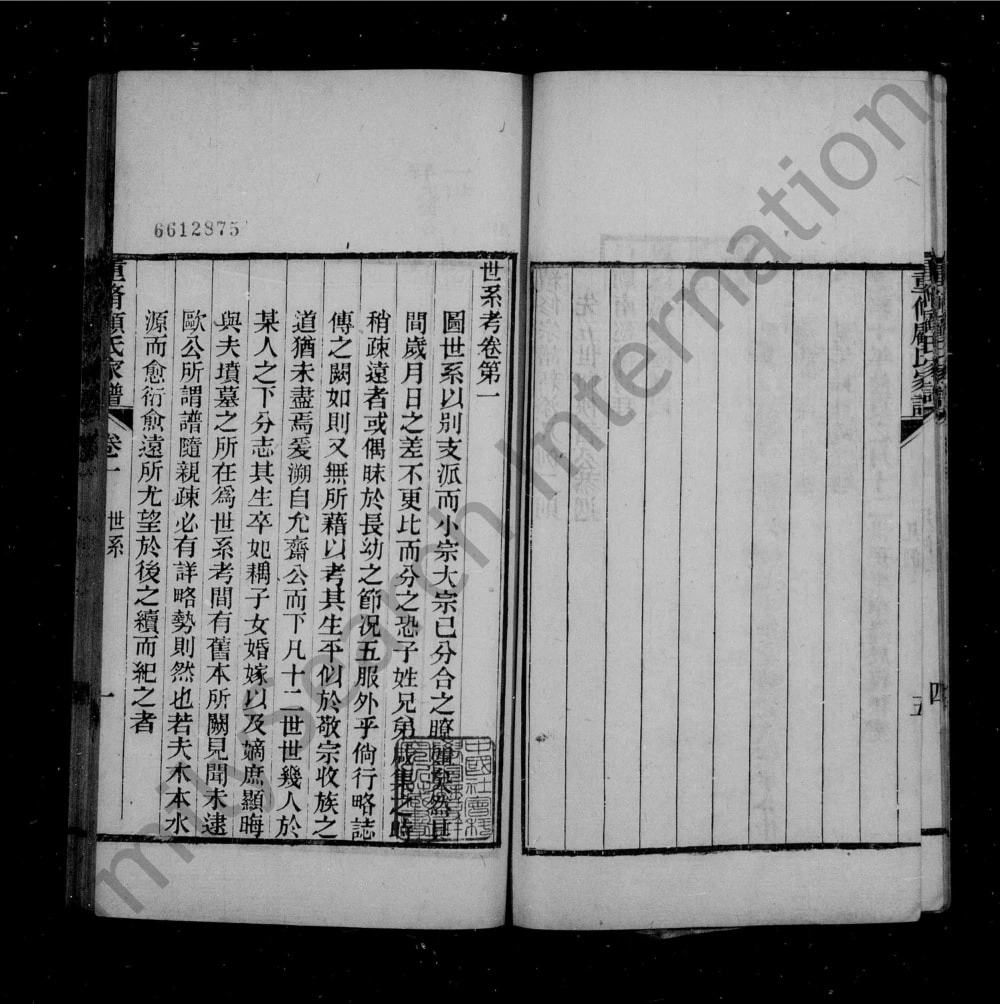 重修顧氏家譜
四
五
6612875
世系考卷第一
圖世系以別支派而小宗大宗已分合之瞭如粲然其
間歲月日之差不更比而分之恐子姓兄弟咸集之時
稍疎遠者或偶昧於長幼之節況五服外乎倘行略誌
傳之闕如則又無所藉以考其生平似於敬宗收族之
道猶未盡焉爰溯自允齋公而下凡十二世世幾人於
某人之下分志其生卒妃耦子女婚嫁以及嫡庶顯晦
與夫墳墓之所在爲世系考間有舊本所闕見聞未逮
歐公所謂譜隨親疎必有詳略勢則然也若夫木本水
源而愈衍愈遠所尤望於後之續而紀之者
重脩顧氏家譜
卷一
世系
一
milySearch International